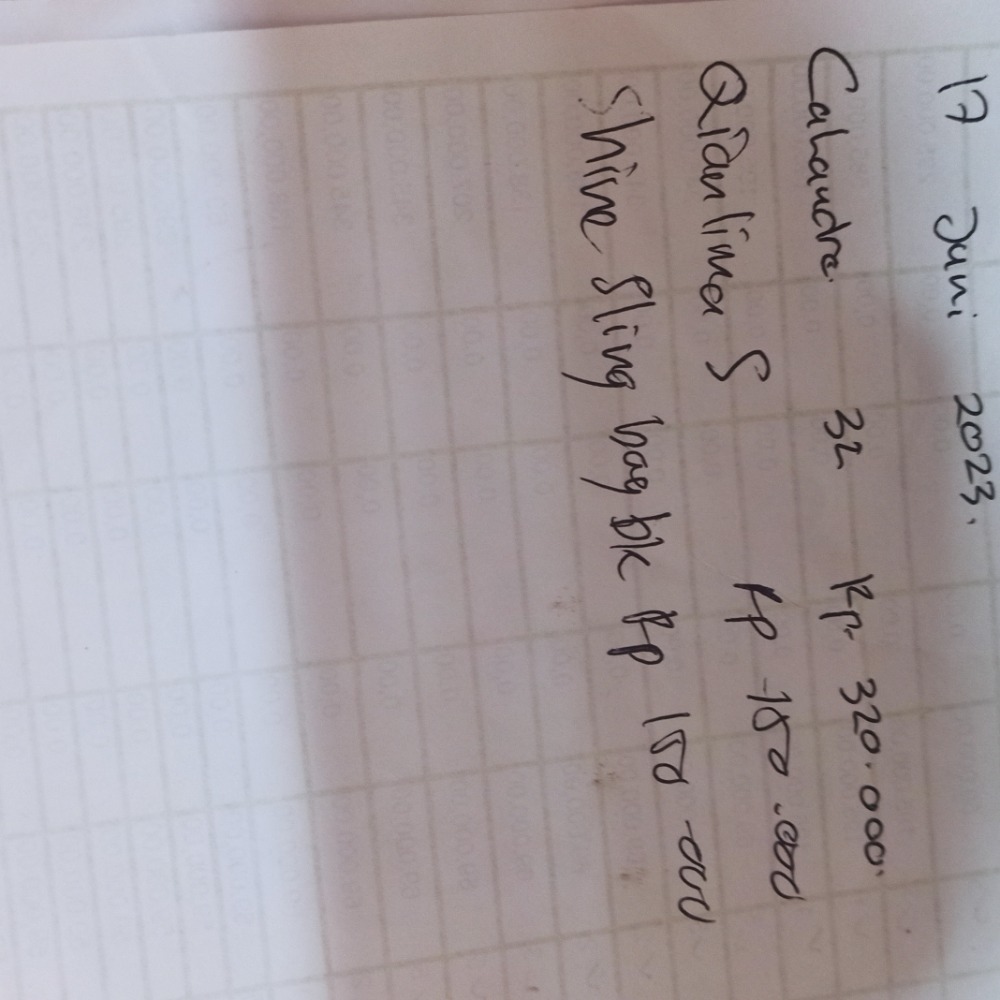 17 Juni 2023.
Cahandra. 32 Rp. 320.000.
Qianlima S Rp 150.000
Shine Sling bag bk Rp 150.000